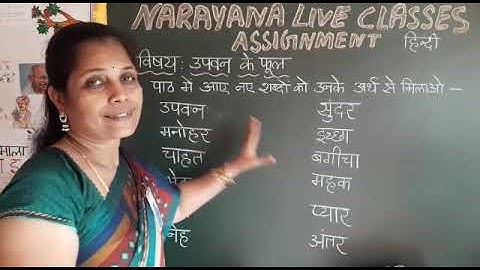 NARAYANA LIVE CLASSES
ASSIGNMENT हिन्दी
विषय: उपवन के फूल
पाठ में आए नए शब्दों को उनके अर्थ से मिलाओ —
उपवन सुंदर
मनोहर इच्छा
चाहत बगीचा
महक
प्यार
नेह अंतर
माला